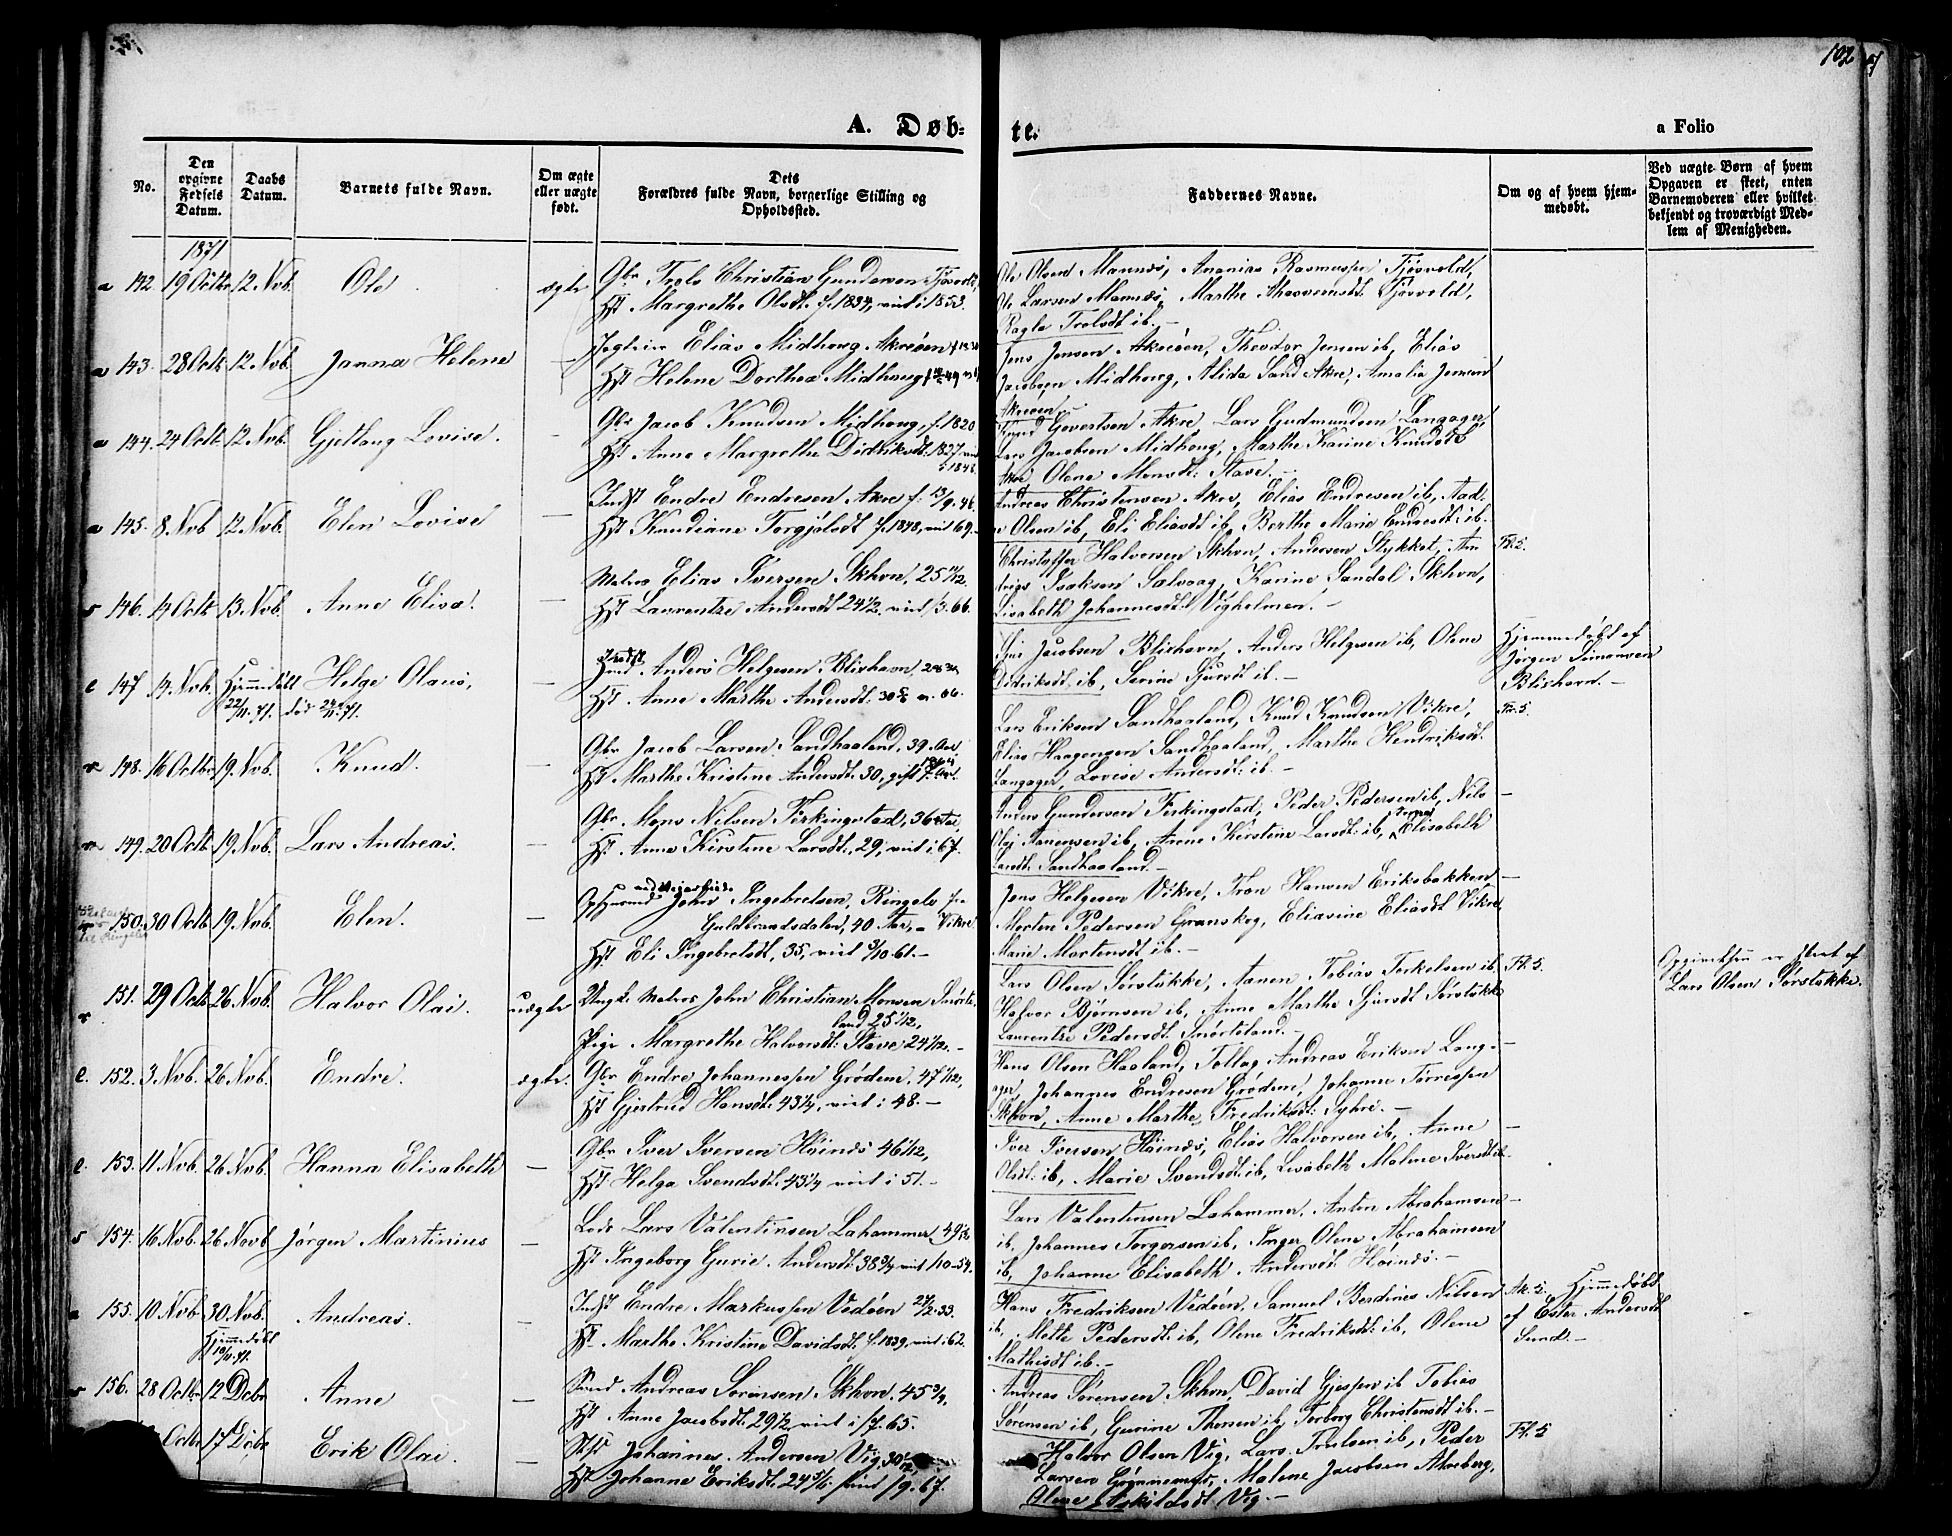 102
A. Døb-
te.
a Folio
No.
Den opgivne Fødsels Datum.
Daabs Datum.
Barnets fulde Navn.
Om ægte eller uægte født.
Dets Forældres fulde Navn, borgerlige Stilling og Opholdssted.
Faddernes Navne.
Om og af hvem hjemmedøbt.
Ved uægte Børn af hvem Opgaven er skeet, enten Barnemoderen eller hvilket bekjendt og troværdigt Medlem af Menigheden.
1871
a 142 19 Octbr 12 Nvb. Ole ægte
Gbr Trols Christian Gundersen Tjøsvold,
Hst. Margrethe Olsdt. f. 1834, viet i 1853.
Ole Olsen Mannes, Ananias Rasmussen Tjøsvold,
Ole Larsen Mannes, Marthe Tjøsvold,
Trolsdt ib. -
a 143. 28 Octb 12 Nvb. Janna Helene -
Elias Midhoug Akreøen
Hst Helene Dorthea Midhoug
Jens Jensen Akreøen, Theodor Jensen ib, Elias
Jacobsen Midhoug, Alida Sand Akre, Amalia Jensen
Akreøen. -
a 144. 24 Octb 12 Nvb. Gjetlaug Lovise. -
Gbr Jacob Knudsen Midhoug, f. 1820
Hst. Anne Margrethe Didriksdt. 1827, viet
i 1848.
Knud Govertsen Akre, Lars Gudmundsen Langager,
Lars Jacobsen Midhoug, Marthe Karine Knudsdt
Akre, Olene Monsdt. Stave. -
a 145. 8. Nvb 12 Nvb. Elen Lovise -
Indst Endre Endresen Akre f. 13/9. 46
Hst Knudiane Torgjølsdt f. 1848, viet 69. -
Andreas Christensen Akre, Elias Endresen ib, Aad-
ne Olsen ib, Eli Eliasdt ib, Berthe Marie Endresdt: ib.
s 146. 14 Octb 13. Nvb. Anne Elisa. -
Matros Elias Iversen Skhvn, 25 11/12
Hst Laurentze Andersdt 24 1/2. viet /3. 66.
Christoffer Halvorsen Skhvn, Andersen Stykket, An-
drias Isaksen Salvaag, Karine Sandal Skhvn,
Lisabeth Johannesdt. Vigholmen. -
Fl. 5.
e 147 14. Nvb. Hjemmedøbt Helge Olaus, -
22/11. 71. død 24/11. 71.
Anders Helgesen Blikhavn,
Hst. Anne Marthe Andersdt.
Jacobsen Blikhavn, Anders Helgesen ib, Olene
Didriksdt ib, Serine Sjursdt ib. -
Hjemmedøbt af
Jørgen Simonsen
Blikhavn. -
Fl. 5.
148. 16 Octbr 19. Nvb. Knud. -
Gbr Jacob Larsen Sandhaaland, 39. Aar,
Hst Marthe Kristine Andersdt. 30, gift
Lars Eriksen Sandhaaland, Knud Knudsen Vikre,
Elias Haagensen Sandhaaland, Marthe Hendriksdt.
Langager, Lovise Andersdt: ib. -
149. 20 Octb 19 Nvb. Lars Andreas. -
Gbr. Mons Nilsen Ferkingstad, 36 Aar,
Hst. Anne Kirstine Larsdt. 29, viet i 67.
Anders Gundersen Ferkingstad, Peder Pedersen ib, Nils
Olaj Aanensen ib, Anne Kirstine Larsdt: ib, Elisabeth
Sandhaaland. -
150. 30 Octb 19 Nvb. Elen. -
ved Vejarbeide
John Ingebretsen, Ringebo
Guldbrandsdalen, 40 Aar, - Vikre
Hst. Eli Ingebretsdt, 35, viet 3/10 61. -
Jens Helgesen Vikre, Tron Hansen Eriksbakken
Morten Pedersen Granskog, Eliasine Eliasdt Vikre,
Marie Mortensdt ib. -
151. 29 Octb 26 Nvb. Halvor Olai. uægte
Ungk. Matros John Christian Monsen Snørte-
land 25 1/12,
Pige Margrethe Halvorsdt: Stave 24 1/12. -
Lars Olsen Sørstokke, Aanen Tobias Terkelsen ib,
Halvor Bjørnsen ib, Anne Marthe Sjursdt Sørstokke
Laurentze Pedersdt Snørteland. -
Fl. 5.
Opgivelsen er skeet af
Lars Olsen Sørstokke.
e. 152. 3. Nvb. 26 Nvb. Endre. ægte.
Gbr Endre Johannessen Grødem, 47 1/12,
Hst Gjertrud Hansdt. 43 1/4, viet i 48. -
Hans Olsen Haaland, Tollag, Andreas Eriksen Lang-
ager, Johannes Endresen Grødem, Johanne Torressen
Skhvn, Anne Marthe Fredriksdt. Syhre. -
e. 153. 11. Nvb. 26 Nvb. Hanna Elisabeth -
Gbr Iver Iversen Høines 46 1/12,
Hst Helga Svendsdt. 43 1/4 viet i 51. -
Iver Iversen Høines, Elias Halvorsen ib, Anne
Olsdt. ib, Marie Svendsdt. ib, Lisabeth Malene Iversdt ib.
s 154. 16 Nvb. 26 Novb Jørgen Martinius -
Lods Lars Valentinsen Lahammer
Hst Ingeborg Gurie Andersdt. 38 3/4 viet /10-54.
Lars Valentinsen Lahammer, Anton Abrahamsen
ib, Johannes Torgersen ib, Inger Olene Abrahamsen
ib, Johanne Elisabeth Andersdt Høines. -
a 155. 10. Nvb. 30 Nvb. Andreas. -
Hjemmedøbt
Indst Endre Markussen Vedøen 27/2. 33.
Hst Marthe Kristine Davidsdt. f. 1839, viet i 62.
Hans Fredriksen Vedøen, Samuel Berdines Nilsen
ib, Mette Pedersdt: ib, Olene Fredriksdt: ib, Olene
Mathisdt ib. -
Ak. 5. Hjemmedøbt
af Ester Andersdt
Sund. -
s 156. 28 Octbr 12 Dcbr Anne -
Andreas Sørensen Skhvn. 45 3/4,
Hst. Anne Jacobsdt. 29 1/2 viet i /7. 65.
Andreas Sørensen Skhvn, David Gjessen ib Tobias
Sørensen ib, Gurine Thorsen ib, Torborg Christensdt ib. -
Octbr 17 Dcbr Erik Olai. -
Johannes Andersen Vig,
Hst Johanne Eriksdt. 24 5/6, viet /9. 67.
Halvor Olsen Vig, Lars Trulsen ib, Peder
Larsen Grønnemyr, Malene Jacobsen
Olene Askildsdt Vig. -
Fl. 5